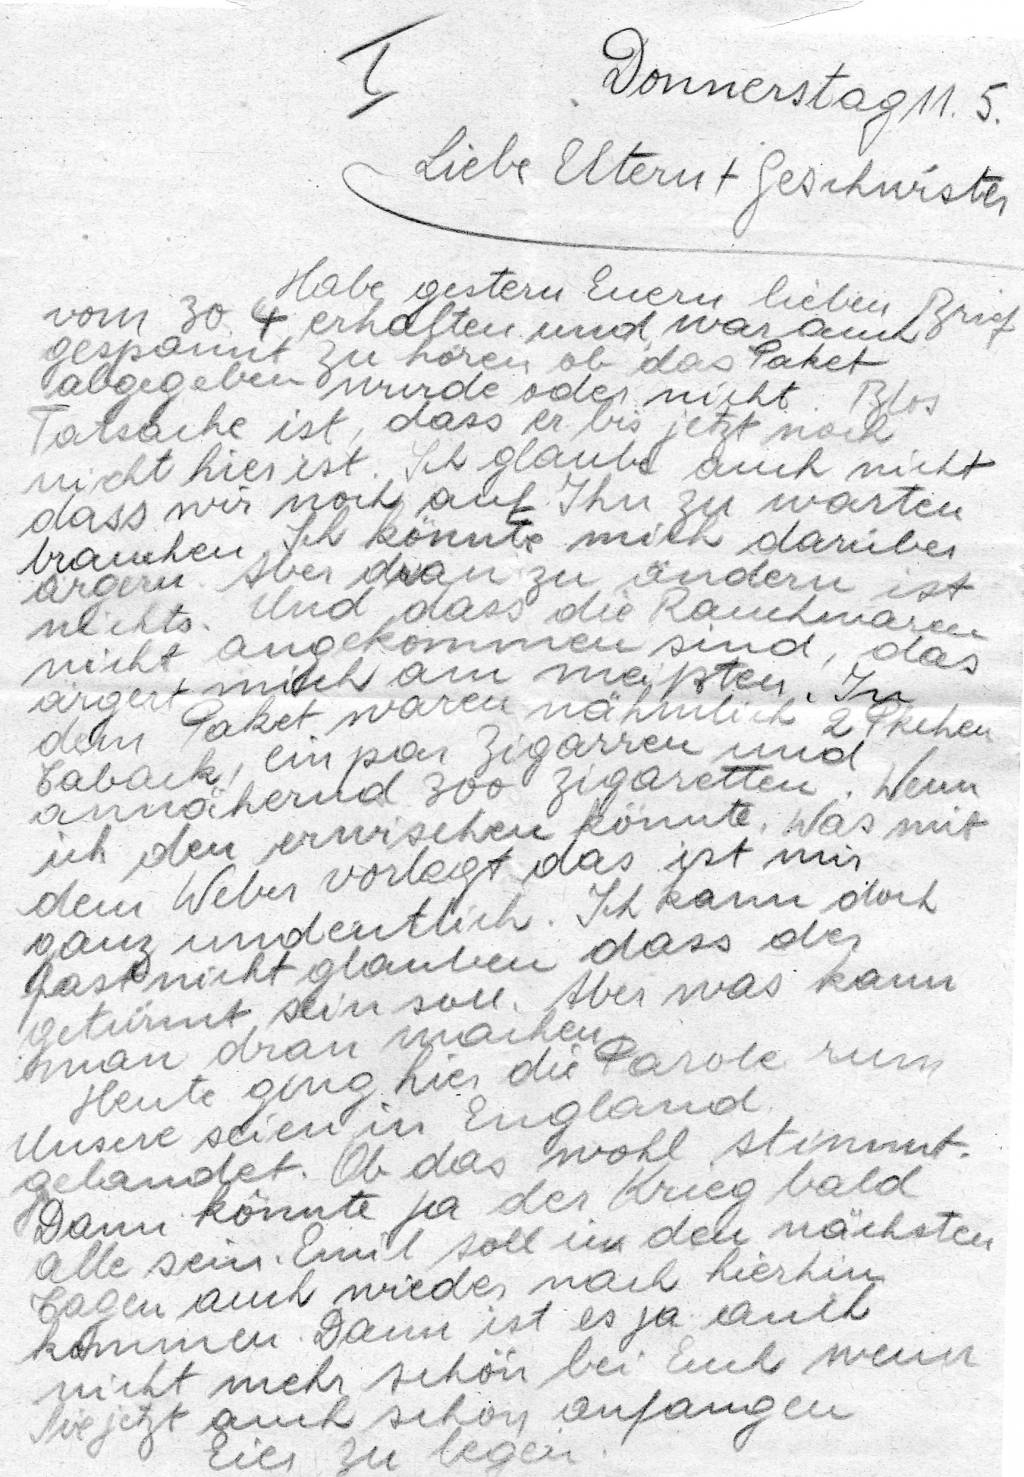 I
Donnerstag 11. 5.
Liebe Eltern + Geschwister
Habe gestern Euern lieben Brief
vom 30. 4 erhalten und war auch
gespannt zu hören ob das Paket
abgegeben wurde oder nicht. Blos
Tatsache ist, dass er bis jetzt noch
nicht hier ist. Ich glaube auch nicht
dass wir noch auf Ihn zu warten
brauchen. Ich könnte mich darüber
ärgern. Aber dran zu ändern ist
nichts. Und dass die Rauchwaren
nicht angekommen sind, das
ärgert mich am meißten. In
dem Paket waren nähmlich 2 Pkchen
Taback, ein par Zigarren und
annähernd 300 Zigaretten. Wenn
ich den erwischen könnte. Was mit
dem Weber vorlegt das ist mir
ganz undeutlich. Ich kann doch
fast nicht glauben dass der
getürmt sein soll. Aber was kann
man dran machen
Heute ging hier die Parole rum
Unsere seien in England
gelandet. Ob das wohl stimmt.
Dann könnte ja der Krieg bald
alle sein. Emil soll in den nächsten
Tagen auch wieder nach hierhin
kommen. Dann ist es ja auch
nicht mehr schön bei Euch wenn
sie jetzt auch schon anfangen
Eier zu legen.